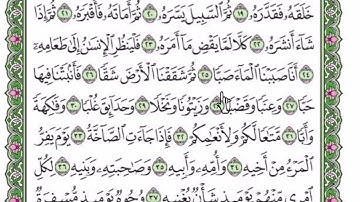 خَلَقَهُۥ فَقَدَّرَهُۥ ١٩ ثُمَّ ٱلسَّبِيلَ يَسَّرَهُۥ ٢٠ ثُمَّ أَمَاتَهُۥ فَأَقْبَرَهُۥ ٢١ ثُمَّ إِذَا
شَآءَ أَنشَرَهُۥ ٢٢ كَلَّا لَمَّا يَقْضِ مَآ أَمَرَهُۥ ٢٣ فَلْيَنظُرِ ٱلْإِنسَٰنُ إِلَىٰ طَعَامِهِۦٓ
٢٤ أَنَّا صَبَبْنَا ٱلْمَآءَ صَبًّا ٢٥ ثُمَّ شَقَقْنَا ٱلْأَرْضَ شَقًّا ٢٦ فَأَنۢبَتْنَا فِيهَا
حَبًّا ٢٧ وَعِنَبًا وَقَضْبًا ٢٨ وَزَيْتُونًا وَنَخْلًا ٢٩ وَحَدَآئِقَ غُلْبًا ٣٠ وَفَٰكِهَةً
وَأَبًّا ٣١ مَّتَٰعًا لَّكُمْ وَلِأَنْعَٰمِكُمْ ٣٢ فَإِذَا جَآءَتِ ٱلصَّآخَّةُ ٣٣ يَوْمَ يَفِرُّ
ٱلْمَرْءُ مِنْ أَخِيهِ ٣٤ وَأُمِّهِۦ وَأَبِيهِ ٣٥ وَصَٰحِبَتِهِۦ وَبَنِيهِ ٣٦ لِكُلِّ
ٱمْرِئٍ مِّنْهُمْ يَوْمَئِذٍ شَأْنٌ يُغْنِيهِ ٣٧ وُجُوهٌ يَوْمَئِذٍ مُّسْفِرَةٌ